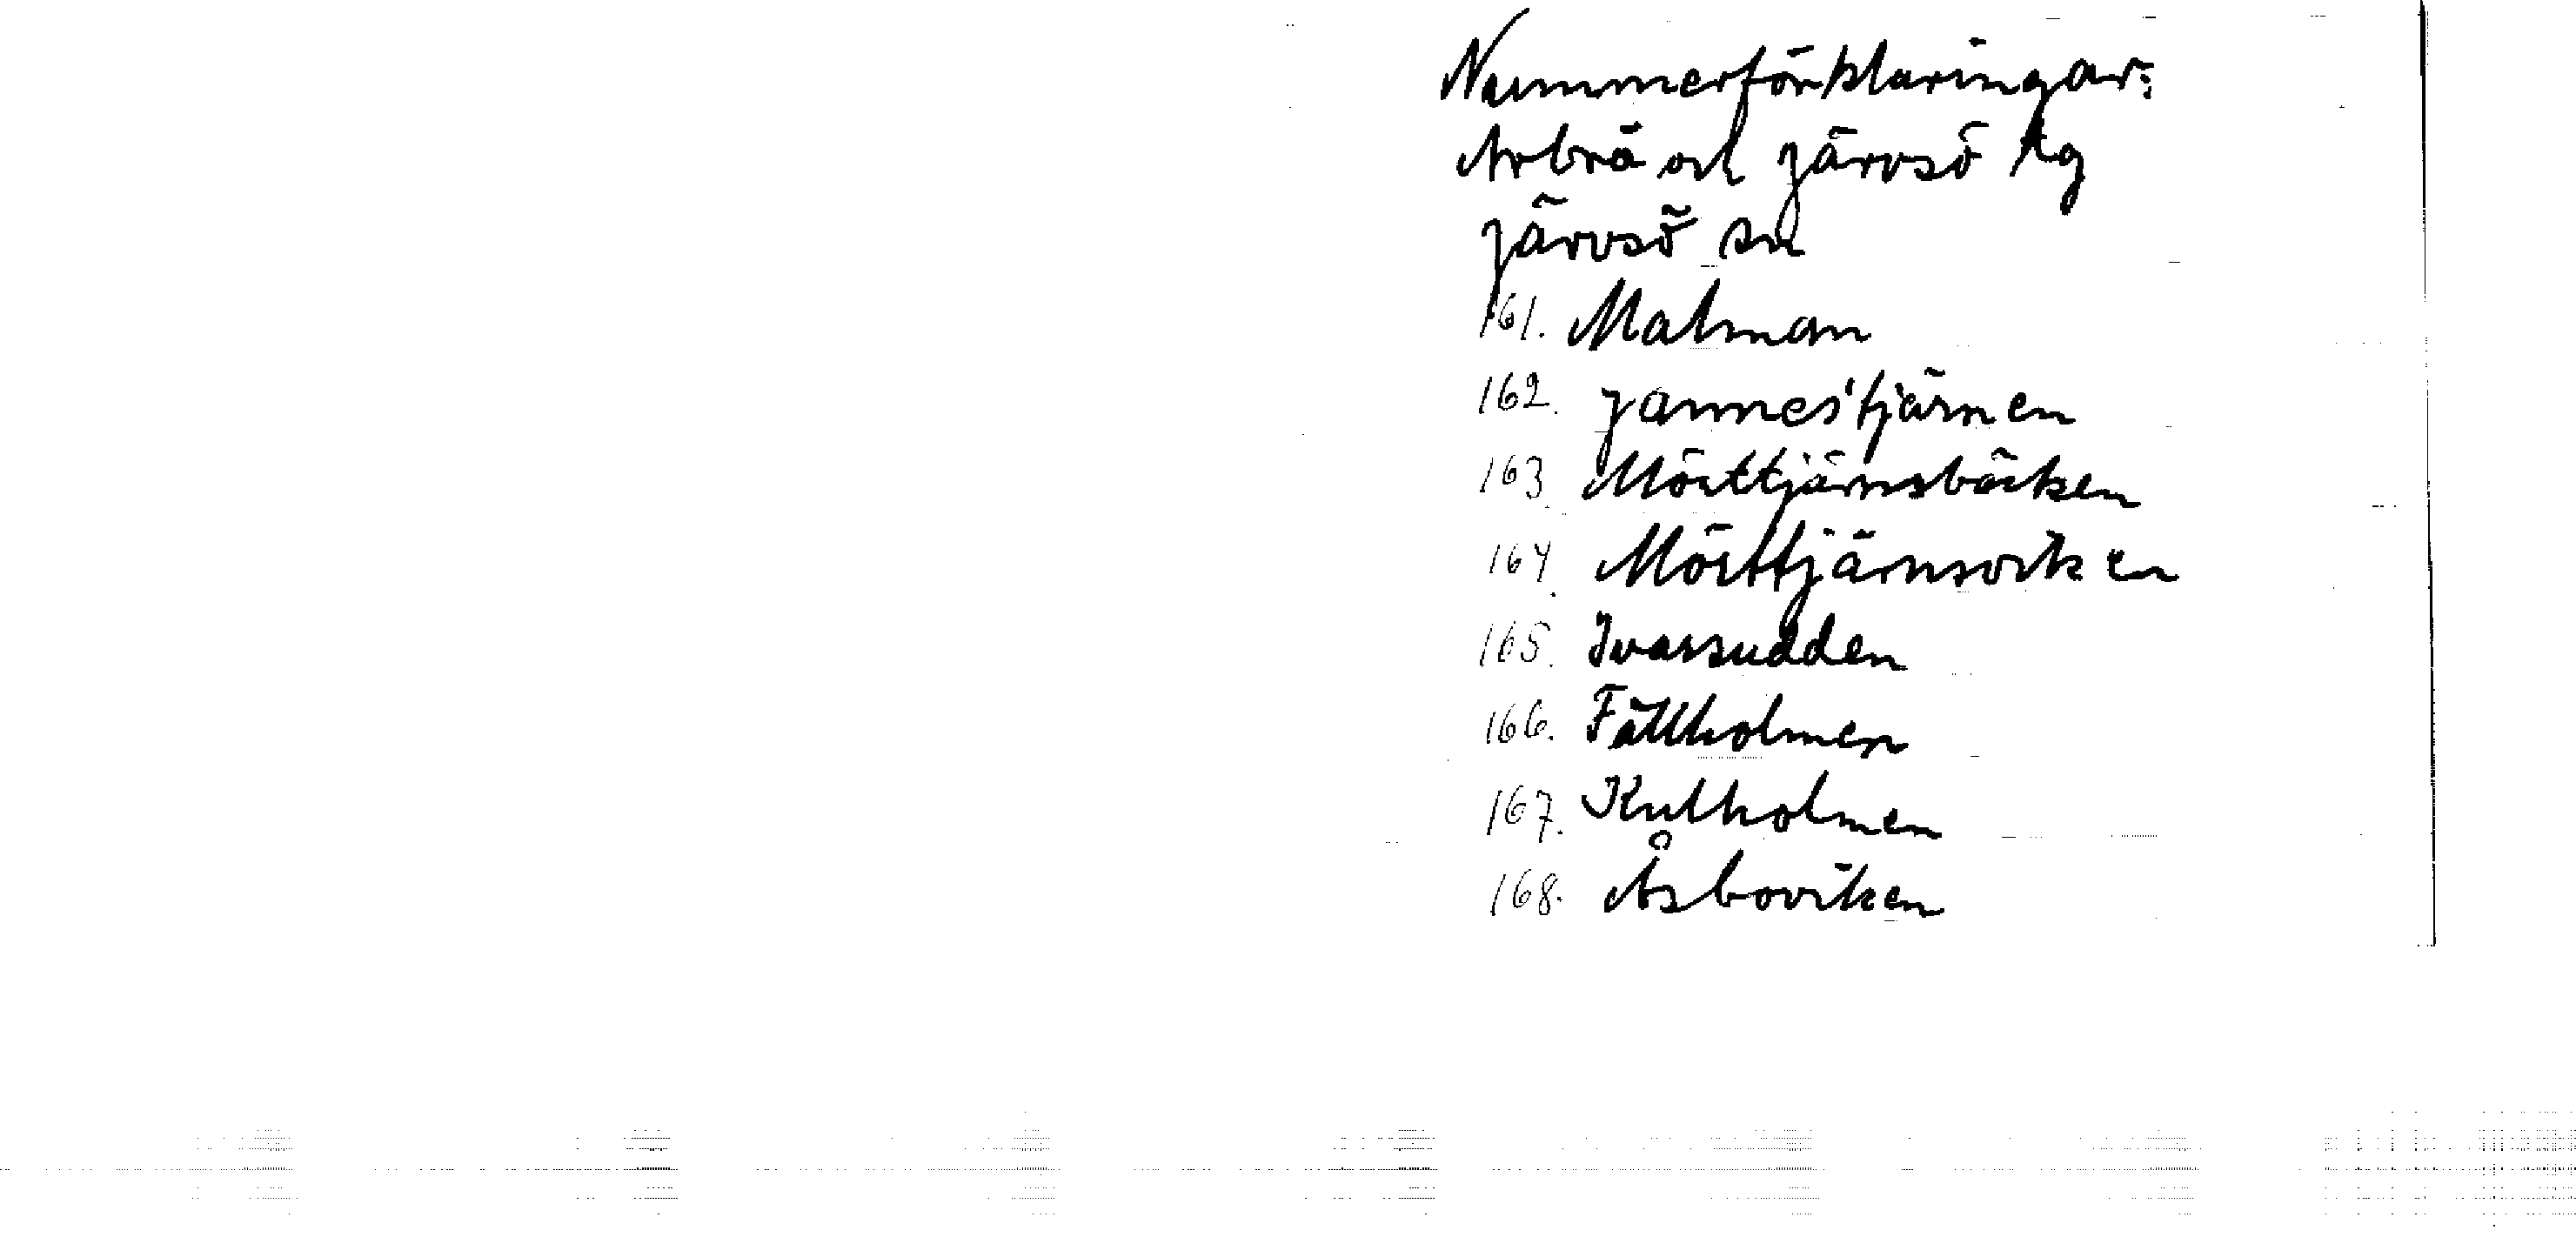 Nummerförklaringar:
Arbrå och Järvsö tg
Järvsö sn
161. Malman
162. Jannestjärnen
163 Mörttjärnsbäcken
164. Mörttjärnsviken
165. Ivarsudden
166. Fällholmen
167. Kulholmen
168. Åsboviken